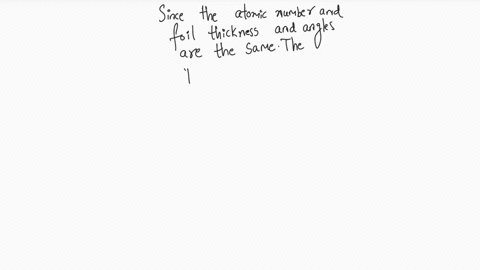 Since the atomic number and
foil thickness and angles
are the same. The